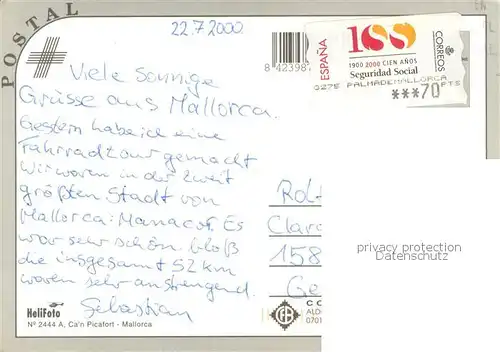 POSTAL
22.7.2000
Viele sonnige
Grüsse aus Mallorca.
Gestern habe ich eine
Fahrradtour gemacht
Wir waren in der zweit
größten Stadt von
Mallorca: Manacor. Es
war sehr schön, bloß
die insgesamt 52 km
waren sehr anstrengend.
Sebastian
HeliFoto
Nº 2444 A, Ca'n Picafort - Mallorca
ESPAÑA
100
1900 2000 CIEN AÑOS
Seguridad Social
CORREOS
0275 PALMADEMALLORCA
***70 PTS
8 42398
Clar
158
Ge
privacy protection
Datenschutz
CO
ALD
0701